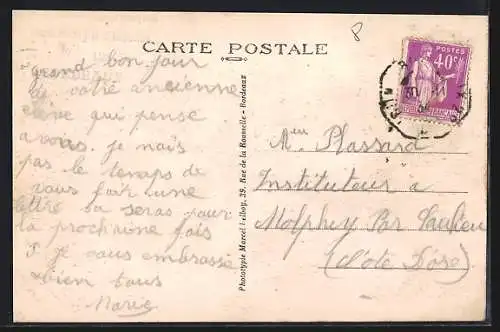 8
CARTE POSTALE
grand bon jour
de votre ancienne
élève qui pense
a vous. je nais
pas le temps de
vous fair une
lettre sa seras pour
la prochaine fois
je vous embrasse
bien tous
Marie
Phototypie Marcel Delboy, 39, Rue de la Rousselle - Bordeaux
POSTES
40c
Plassard
Instituteur à
Molphey Par Saulieu
(Côte D'ôse)